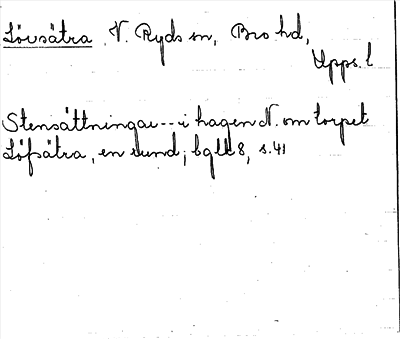 Lövsätra V. Ryds sn, Bro hd,
Upps. l
Stensättningar -- i hagen N. om torpet
Löfsätra, en rund; bglk 8, s. 41